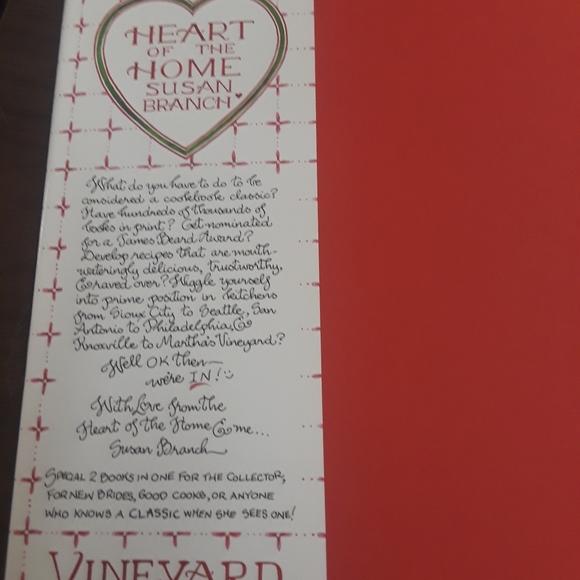 HEART
OF THE
HOME
SUSAN
BRANCH
What do you have to do to be
considered a cookbook classic?
Have hundreds of thousands of
books in print? Get nominated
for a James Beard Award?
Develop recipes that are mouth-
wateringly delicious, trustworthy,
& raved over? Wiggle yourself
into prime position in kitchens
from Sioux City to Seattle, San
Antonio to Philadelphia, &
Knoxville to Martha's Vineyard?
Well OK then—
we're IN!
With Love from the
Heart of the Home & me...
Susan Branch
SPECIAL 2 BOOKS IN ONE FOR THE COLLECTOR,
FOR NEW BRIDES, GOOD COOKS, OR ANYONE
WHO KNOWS A CLASSIC WHEN SHE SEES ONE!
VINEYARD